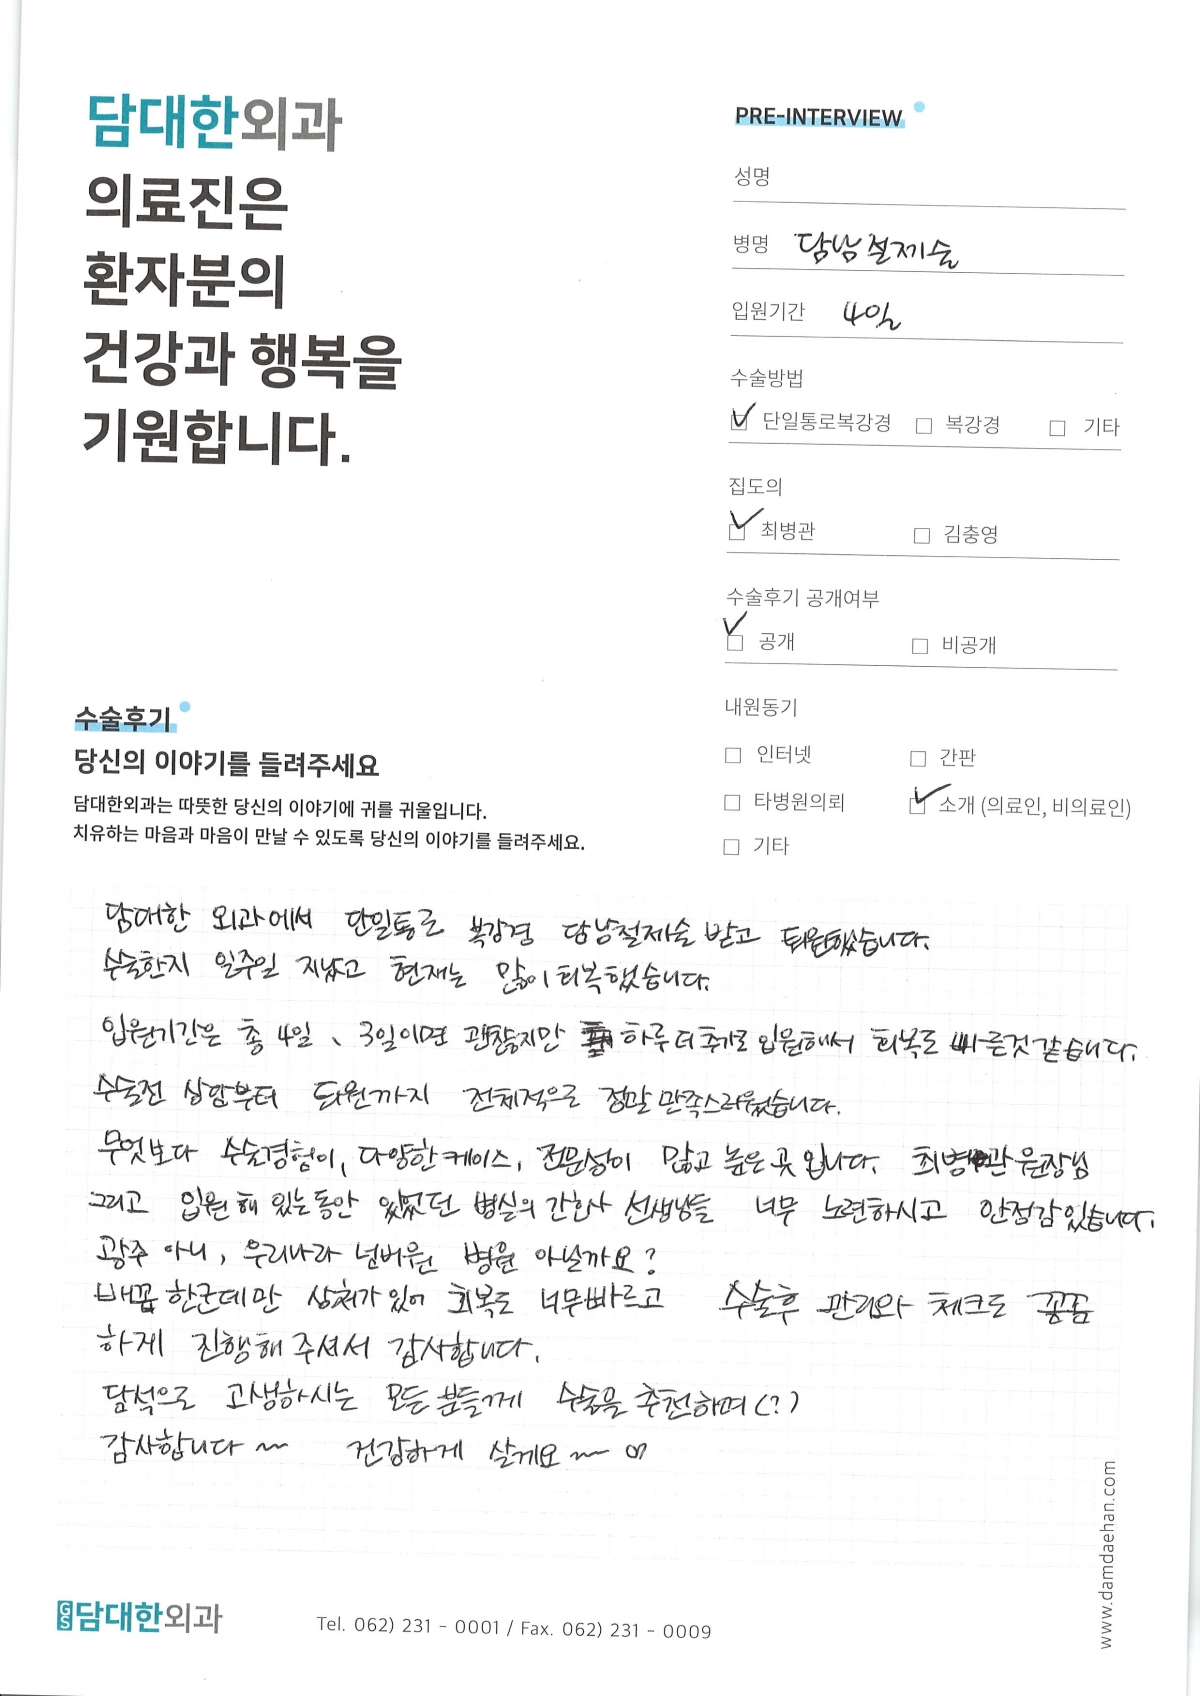 담대한외과
의료진은
환자분의
건강과 행복을
기원합니다.
PRE-INTERVIEW
성명
병명 담낭절제술
입원기간 4일
수술방법
☑ 단일통로복강경 ☐ 복강경 ☐ 기타
집도의
☑ 최병관 ☐ 김충영
수술후기 공개여부
☑ 공개 ☐ 비공개
내원동기
☐ 인터넷 ☐ 간판
☐ 타병원의뢰 ☑ 소개 (의료인, 비의료인)
☐ 기타
수술후기
당신의 이야기를 들려주세요
담대한외과는 따뜻한 당신의 이야기에 귀를 귀울입니다.
치유하는 마음과 마음이 만날 수 있도록 당신의 이야기를 들려주세요.
담대한 외과에서 단일통로 복강경 담낭절제술 받고 퇴원했습니다.
수술한지 일주일 지났고 현재는 많이 회복했습니다.
입원기간은 총 4일, 3일이면 괜찮지만 하루 더 추가로 입원해서 회복도 빠른것 같습니다.
수술전 상담부터 퇴원까지 전체적으로 정말 만족스러웠습니다.
무엇보다 수술경험이, 다양한 케이스, 전문성이 많고 높은 곳 입니다. 최병관 원장님
그리고 입원해 있는동안 있었던 병실의 간호사 선생님들 너무 노련하시고 안정감있습니다.
광주 아니, 우리나라 넘버원 병원 아닐까요?
배꼽 한군데만 상처가 있어 회복도 너무빠르고 수술후 관리와 체크도 꼼꼼
하게 진행해 주셔서 감사합니다.
담석으로 고생하시는 모든 분들께 수술을 추천하며(?)
감사합니다~~ 건강하게 살게요~~ ♡
GS 담대한외과
Tel. 062) 231 - 0001 / Fax. 062) 231 - 0009
www.damdaehan.com